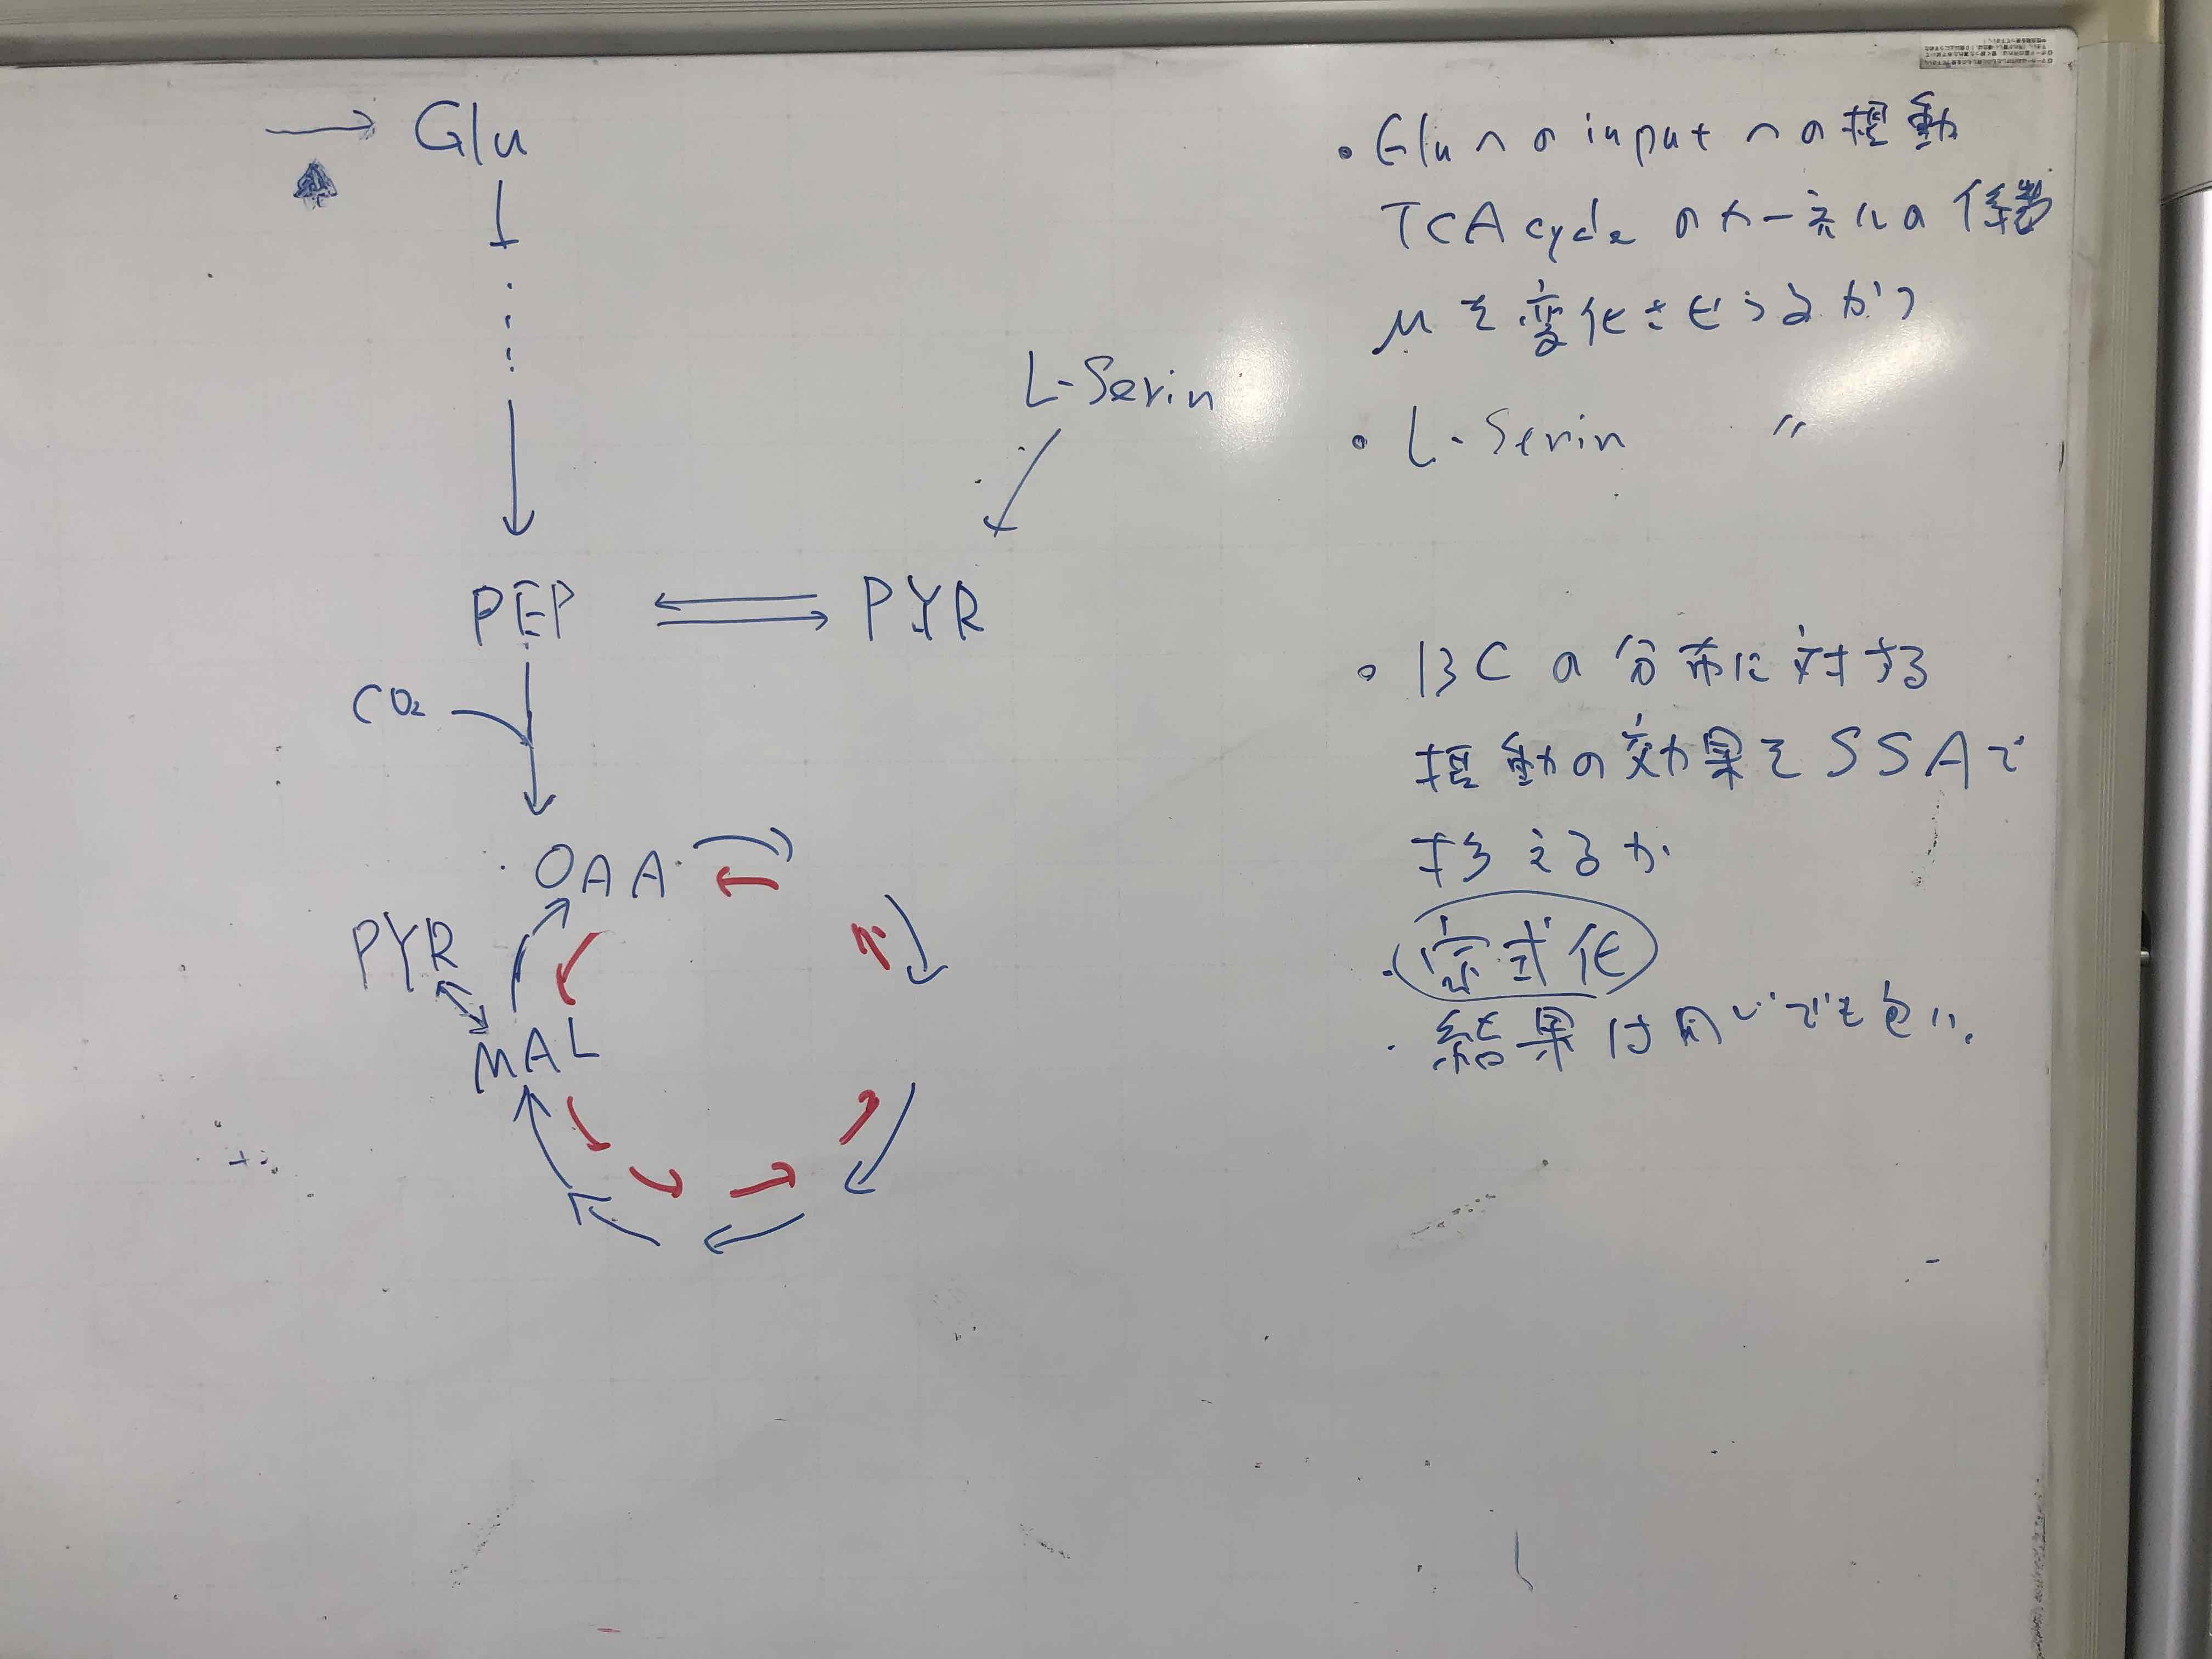 Glu
L-Serin
PEP
PYR
CO₂
OAA
PYR
MAL
・Gluへのinputへの摂動
TCA cycleのカーネルの係数
μを変化させうるか?
・L-Serin 〃
・13Cの分布に対する
摂動の効果をSSAで
扱えるか
・定式化
・結果は同じでも良い.